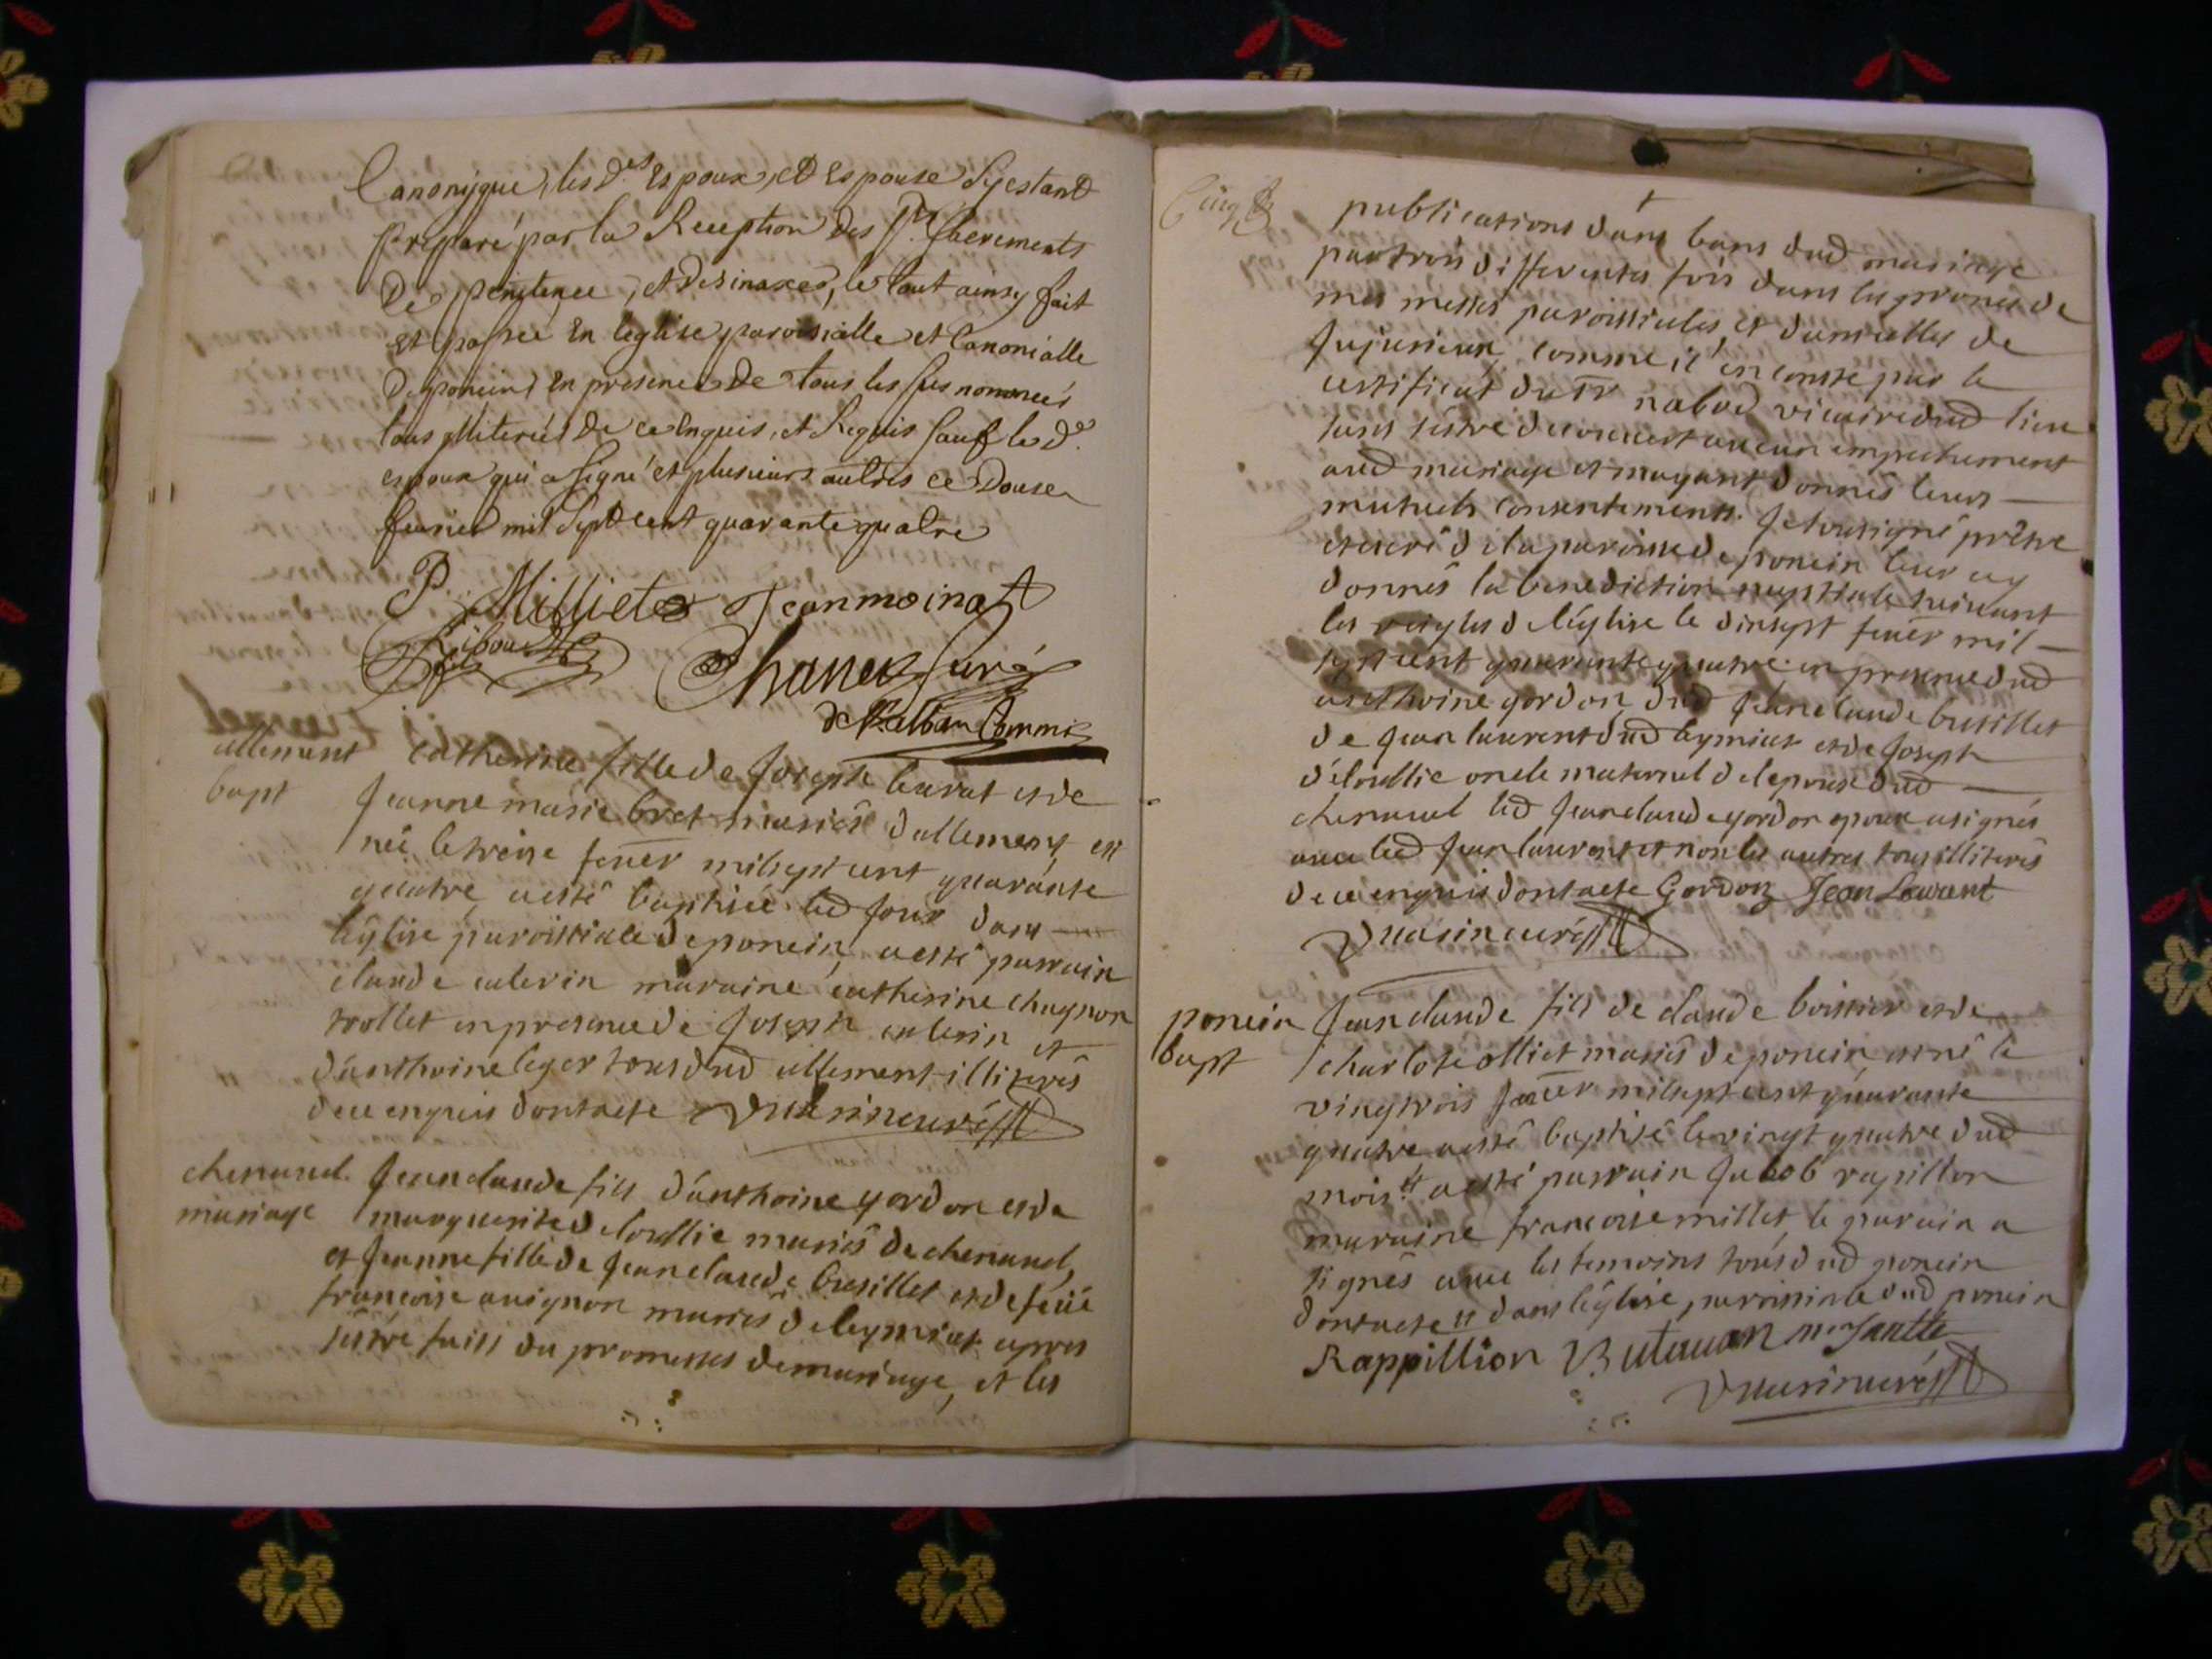 Canonyque, les d.es Espoux, et Espouse s'yestant
Preparé par la Reception des Sts sacrements
De penitence, et
Et passée En l'eglise paroisialle et Canonialle
De poncin En presence de tous les sus nommés
tous illiterés de ce Enquis, et Requis sauf le d.e
espoux qui a signé et plusieurs aultres ce Douse
feurier mil Sept cent quarante quatre
P. Milliet Jean moinat
Riboud Chanel Curé
Commis
allement
bapt
catherine fille de Joseph et de
Jeanne marie bret mariés d'allement est
née le treise feuer mil sept cent quarante
quatre a esté baptisée led jour dans
l'église paroissiale de poncin, a esté parrain
claude caterin maraine catherine chagnon
trollet en presence de Joseph caterin et
d'anthoine leger tous dud allement illiterés
de ce enquis dont acte curé
chenavel.
mariage
Jean claude fils d'anthoine gordon et de
marguerite deloullie mariés de chenavel,
et Jeanne fille de Jean claude busillet et de feüe
francoise auignon mariés de leymiat apres
s'estre faits du promesses de mariage, et les
Cinq
publications dans bans dud mariage
par trois differentes fois dans les prones de
mes messes paroissiales, et dans celles de
Jujurieux, comme il en conste par le
certificat du Sr nabod vicaire dud lieu
sans s'estre decouvert aucun empechement
aud mariage et mayant donnés leurs
mutuels consentements. Je soussigné prêtre
et curé de la paroisse de poncin leur ay
donnés la benediction nuptiale suivant
les reigles de l'église le dixsept feuer mil
sept cent quarante quatre en presence dud
anthoine gordon, dud Jean claude busillet
de Jean laurent dud leymiat et de Joseph
déloullie oncle maternel de l'epouse dud
chenavel led Jean claude gordon epoux a signés
avec led Jean laurent et non les autres tous illiterés
de ce enquis dont acte Gordon Jean Laurent
curé
poncin
bapt
Jean claude fils de claude boissier et de
charlote olliet mariés de poncin, est né le
vingtrois feuer mil sept cent quarante
quatre a esté baptisé le vingt quatre dud
mois. a esté parrain Jacob rapillon
maraine francoise millet, le parain a
signés avec les temoins tous dud poncin
dont acte dans l'église paroissiale dud poncin
Rappillion
curé